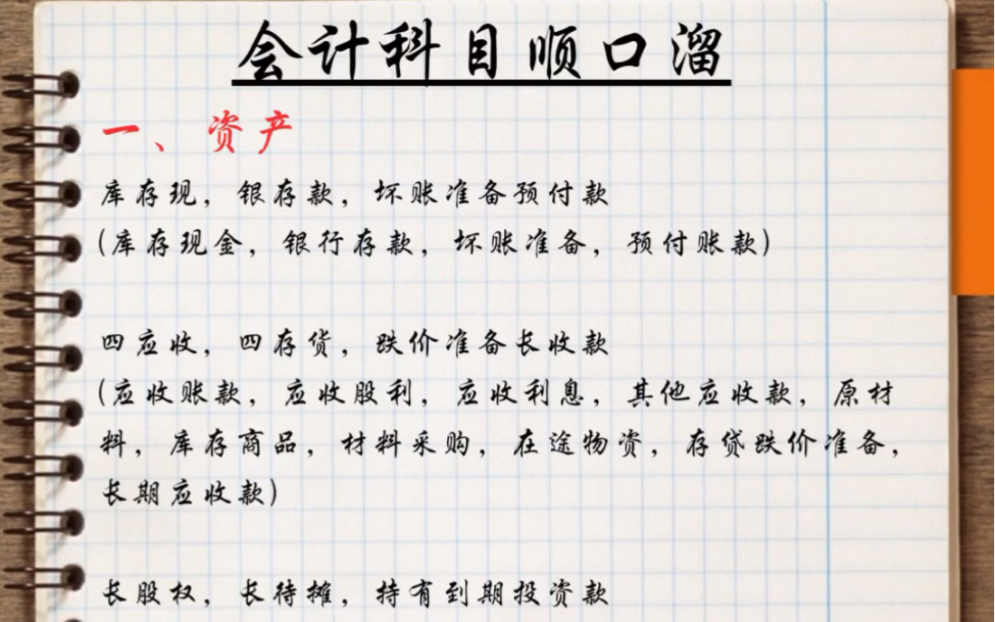 会计科目顺口溜
一、资产
库存现，银存款，坏账准备预付款
(库存现金，银行存款，坏账准备，预付账款)
四应收，四存货，跌价准备长收款
(应收账款，应收股利，应收利息，其他应收款，原材
料，库存商品，材料采购，在途物资，存贷跌价准备，
长期应收款)
长股权，长待摊，持有到期投资款